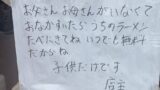 お父さん お母さんがいなくて
おなかすいたらうちのラーメン
たべにきてね いつでも無料
だからね
子供だけです
店主